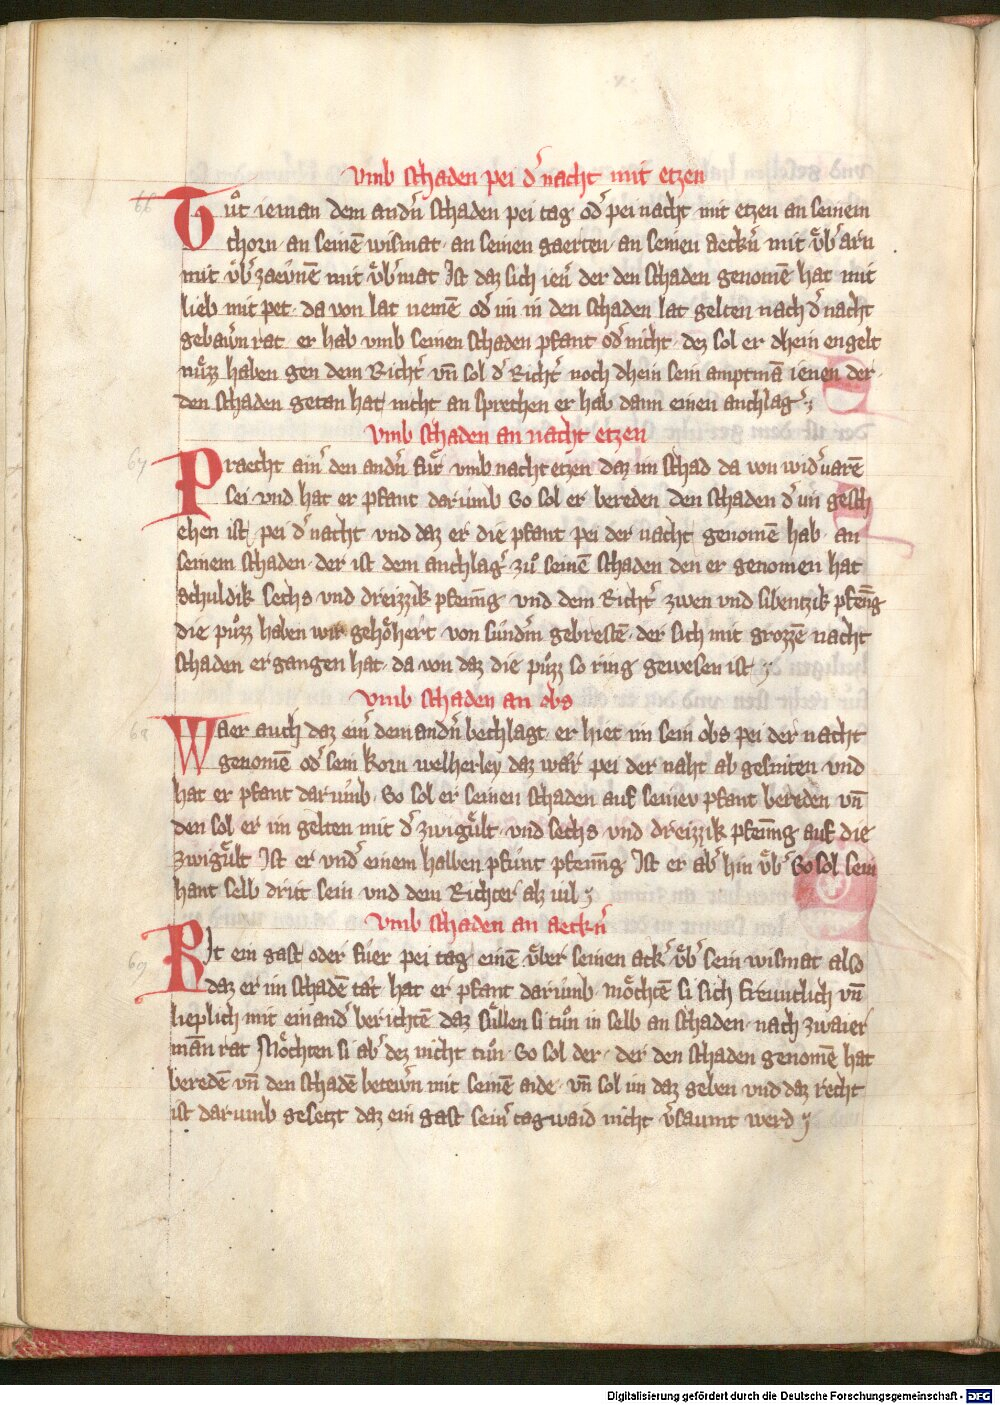 vmb schaden pei d᷑ nacht mit etzen
66
Tuͦt ieman dem andn̄ schaden pei tag od᷑ pei nacht mit etzen an seinem
chorn · an seinē wismat · an seinen gaerten · an seinen aeckn̄ mit vͤb᷑ arn
mit vͤb᷑ zaevnē mit vͤb᷑ mat Ist daz sich ien᷑ der den schaden genomē hat mit
lieb mit pet · da von lat nemē od᷑ im in den schaden lat gelten nach d᷑ nacht
gebawrn rat · er hab vmb seinen schaden pfant od᷑ nicht · dez sol er dhein engelt
nuͤzz haben gen dem Richt᷑ vn̄ sol d᷑ Richt᷑ noch dhein sein amptmā ienen der
den schaden getan hat nicht an sprechen er hab dann einen anchlag᷑
vmb schaden an nacht etzen
67
Praecht ain᷑ den andn̄ fuͤr vmb nacht etzen daz im schad da von wid᷑uarē
sei vnd hat er pfant darumb So sol er bereden den schaden d᷑ im gesch
ehen ist pei d᷑ nacht vnd daz er die pfant pei der nacht genomē hab an
seinem schaden · der ist dem anchlag᷑ zuͦ seinē schaden den er genomen hat
schuldik sechs vnd dreizzik pfenīng vnd dem Richt᷑ zwen vnd sibentzik pfen̄g
die puͦzz haben wir gehoͤhert von sundm̄ gebrestē · der sich mit grozzē nacht
schaden ergangen hat · da von daz die puͦzz so ring gewesen ist
vmb schaden an obs
68
Waer auch daz ein᷑ dem andn̄ bechlagt er hiet im sein obs pei der nacht
genomē od᷑ sein korn welherley daz waͤr pei der naht ab gesniten vnd
hat er pfant darumb · So sol er seinen schaden auf seinev pfant bereden vn̄
den sol er im gelten mit d᷑ zwiguͤlt · vnd sechs vnd dreizzik pfenīng auf die
zwiguͤlt Ist er vnd᷑ einem halben pfunt pfenīng Ist er ab᷑ hin vͤb᷑ So sol sein
hant selb dritt sein vnd dem Richter alz vil
vmb schaden an aeckn̄
69
Rit ein gast oder fuͤer pei tag einē vͤber seinen ack᷑ vͤb᷑ sein wismat also
daz er im schadē taͤt hat er pfant darumb · moͤchtē si sich freuntlich vn̄
lieplich mit einand᷑ berichtē daz suͤllen si tuͦn in selb an schaden · nach zwaier
mān rat Moͤchten si ab᷑ dez nicht tuͦn · So sol der · der den schaden genomē hat
beredē vn̄ den schadē betewrn̄ mit seinē aide · vn̄ sol im daz geben vnd daz recht
ist darumb gesetzt daz ein gast sein᷑ tagwaid nicht v᷑saumt werd
Digitalisierung gefördert durch die Deutsche Forschungsgemeinschaft - DFG